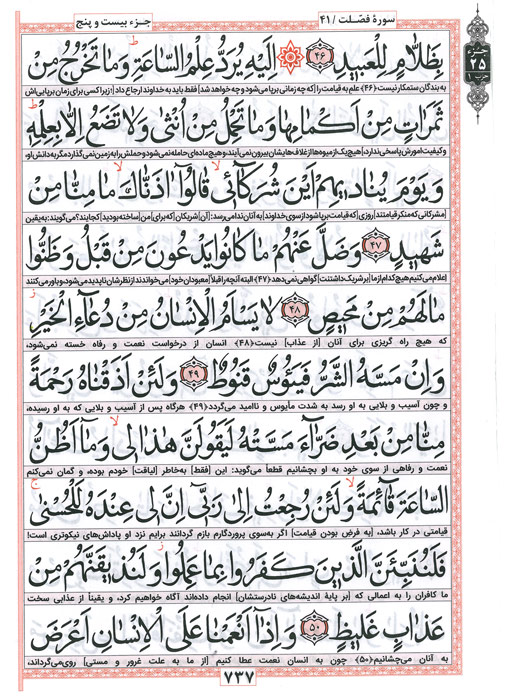 جزء بیست و پنج
سورهٔ فصّلت / ۴۱
جزء
۲۵
حزب ۱
بِظَلَّامٍ لِلْعَبِيدِ ﴿۴۶﴾ إِلَيْهِ يُرَدُّ عِلْمُ السَّاعَةِ وَمَا تَخْرُجُ مِنْ
به بندگان ستمکار نیست ﴿۴۶﴾ علم به قیامت را [که چه زمانی برپا می‌شود و چه خواهد شد] فقط باید به خداوند ارجاع داد [زیرا کسی برای زمان برپایی‌اش
ثَمَرَاتٍ مِنْ أَكْمَامِهَا وَمَا تَحْمِلُ مِنْ أُنْثَى وَلَا تَضَعُ إِلَّا بِعِلْمِهِ
و کیفیت امورش پاسخی ندارد]، هیچ‌یک از میوه‌ها از غلاف‌هایشان بیرون نمی‌آیند، و هیچ ماده‌ای حامله نمی‌شود و حملش را به زمین نمی‌گذارد مگر به دانش او،
وَيَوْمَ يُنَادِيهِمْ أَيْنَ شُرَكَائِي قَالُوا آذَنَّاكَ مَا مِنَّا مِنْ
مشرکانی که منکر قیامتند] روزی [که قیامت برپا شود از سوی خداوند] به آنان ندا می‌رسد: [آن] شریکان [که برای] من [ساخته بودید] کجایند؟ می‌گویند: به یقین
شَهِيدٍ ﴿۴۷﴾ وَضَلَّ عَنْهُمْ مَا كَانُوا يَدْعُونَ مِنْ قَبْلُ وَظَنُّوا
اعلام می‌کنیم هیچ کدام از ما [بر شریک داشتنت] گواهی نمی‌دهد ﴿۴۷﴾ البته آنچه را قبلاً [معبودان خود] می‌خواندند از نظرشان ناپدید می‌شود، و باور می‌کنند
مَا لَهُمْ مِنْ مَحِيصٍ ﴿۴۸﴾ لَا يَسْأَمُ الْإِنْسَانُ مِنْ دُعَاءِ الْخَيْرِ
که هیچ راه گریزی برای آنان [از عذاب] نیست ﴿۴۸﴾ انسان از درخواست نعمت و رفاه خسته نمی‌شود،
وَإِنْ مَسَّهُ الشَّرُّ فَيَئُوسٌ قَنُوطٌ ﴿۴۹﴾ وَلَئِنْ أَذَقْنَاهُ رَحْمَةً
و چون آسیب و بلایی به او رسد به شدت مأیوس و ناامید می‌گردد ﴿۴۹﴾ هرگاه پس از آسیب و بلایی که به او رسیده،
مِنَّا مِنْ بَعْدِ ضَرَّاءَ مَسَّتْهُ لَيَقُولَنَّ هَذَا لِي وَمَا أَظُنُّ
نعمت و رفاهی از سوی خود به او بچشانیم قطعاً می‌گوید: این [فقط] به‌خاطر [لیاقت] خودم بوده، و گمان نمی‌کنم
السَّاعَةَ قَائِمَةً وَلَئِنْ رُجِعْتُ إِلَى رَبِّي إِنَّ لِي عِنْدَهُ لَلْحُسْنَى
قیامتی در کار باشد، [به فرض بودن قیامت] اگر به‌سوی پروردگارم بازم گردانند برایم نزد او پاداش‌های نیکوتری است!
فَلَنُنَبِّئَنَّ الَّذِينَ كَفَرُوا بِمَا عَمِلُوا وَلَنُذِيقَنَّهُمْ مِنْ
ما کافران را به اعمالی که [بر پایهٔ اندیشه‌های نادرستشان] انجام داده‌اند آگاه خواهیم کرد، و یقیناً از عذابی سخت
عَذَابٍ غَلِيظٍ ﴿۵۰﴾ وَإِذَا أَنْعَمْنَا عَلَى الْإِنْسَانِ أَعْرَضَ
به آنان می‌چشانیم ﴿۵۰﴾ چون به انسان نعمت عطا کنیم [از ما به علت غرور و مستی] روی می‌گرداند،
۷۳۷